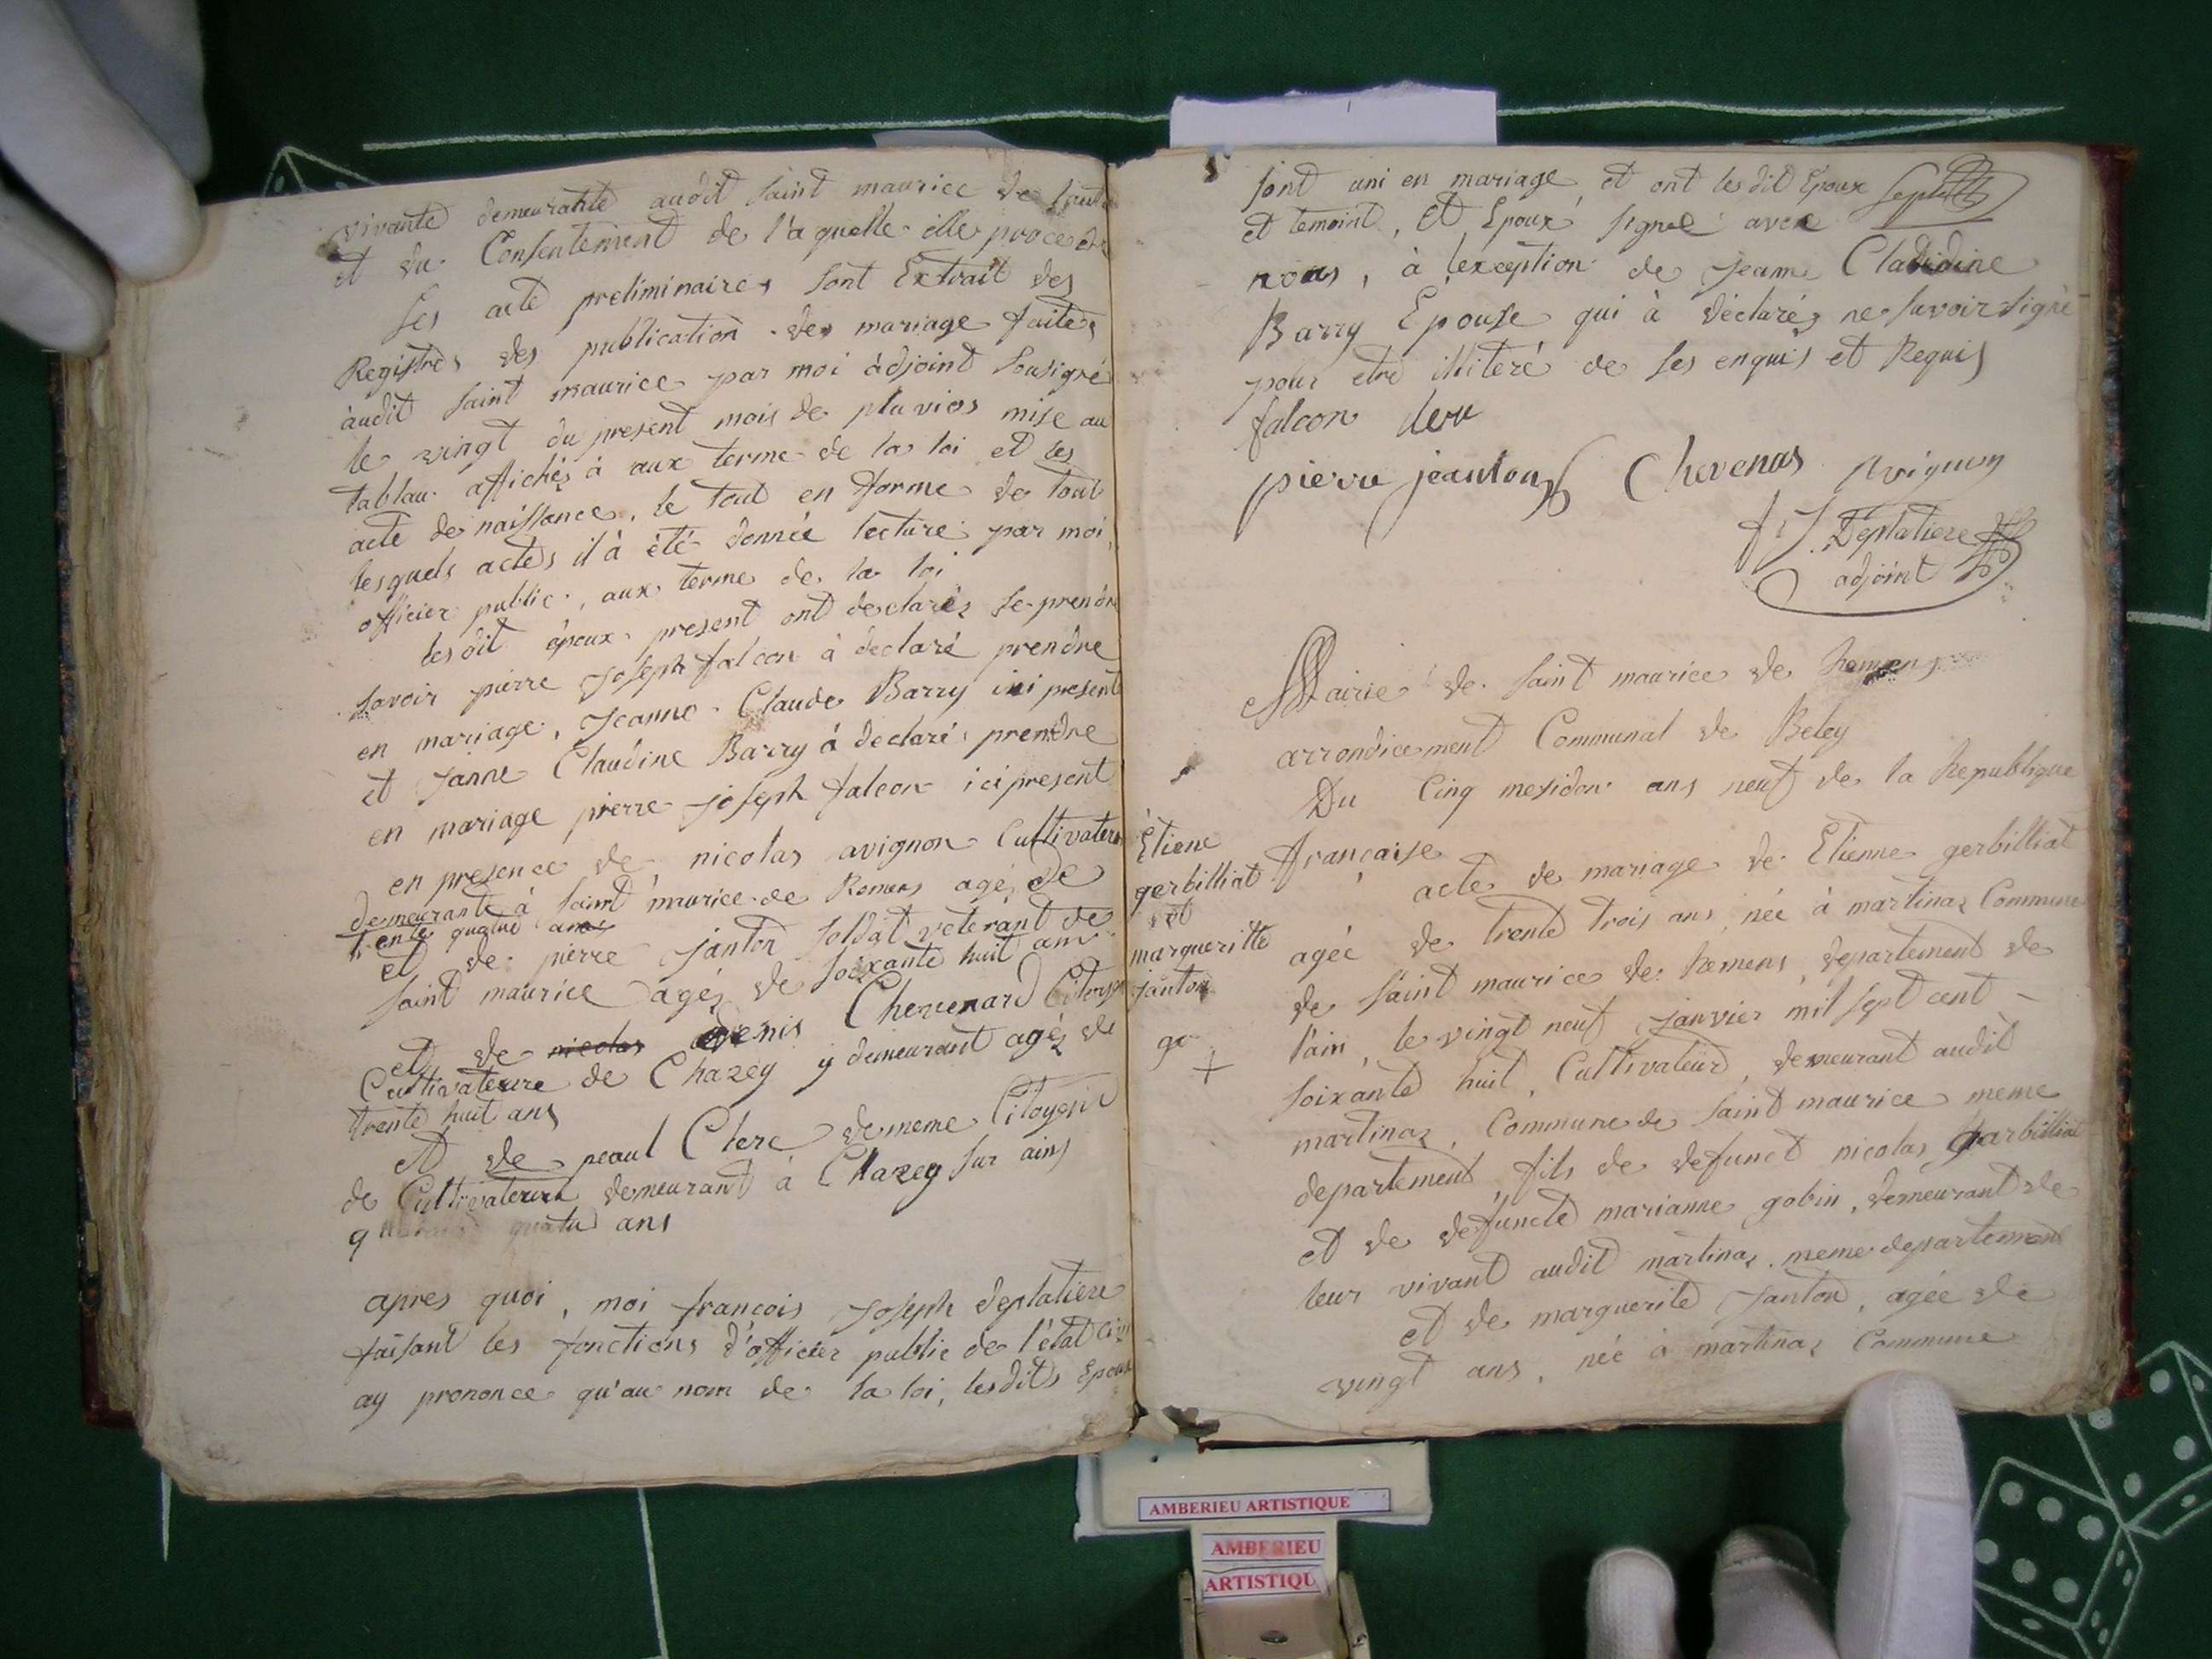 vivante demeurante audit saint maurice de
et du Consentement de laquelle elle procede
les acte preliminaires sont Extrait des
Registres des publication de mariage faites
audit saint maurice par moi adjoint sousigné
le vingt du present mois de pluvios mise au
tablau affichés à aux terme de la loi et les
acte de naissance, le tout en forme de tout
lesquels actes il à été donnée lecture par moi,
officier public, aux terme de la loi
lesdit époux present ont declarés se prendre
savoir pierre joseph falcon à déclaré prendre
en mariage, jeanne Claude Barry ici present
et janne Claudine Barry à declaré prendre
en mariage pierre joseph falcon ici present
en presence de nicolas avignon Cultivateur
demeurante à saint maurice de Remens agés de
trente quatre ans
et de pierre janton soldat veterant de
saint maurice agés de soixante huit ans
et de nicolas denis Chevenard Citoyen
Cultivateure de Chazey y demeurant agés de
trente huit ans
et de peaul Clerc de meme Citoyens
de Cultivateure demeurant à Chazey sur ains
quatre ans
apres quoi, moi francois joseph deplatiere
faisant les fonctions d'officier public de l'état civil
ay prononce qu'au nom de la loi, lesdits Epoux
sont uni en mariage et ont lesdit Epoux
et temoint, et Epoux signé avec
nous, à l'exception de jeanne Claudine
Barry Epouse qui à déclarés ne savoir signé
pour etre illiteré de ses enquis et Requis
falcon
pierre jeanton Chevenas avignon
f J. Deplatiere
adjoint
Mairie de saint maurice de Remens
arrondicement Communal de Beley
Du Cinq mesidor ans neuf de la Republique
française
Étiene
gerbilliat
et
margueritte
janton
acte de mariage de Etienne gerbilliat
agée de trente trois ans, née à martinaz Commune
de saint maurice de Remens, departement de
l'ain, le vingt neuf janvier mil sept cent
soixante huit, Cultivateur, demeurant audit
martinaz, Commune de saint maurice meme
departement, fils de defunct nicolas garbilliat
et de defuncte marianne gobin, demeurant de
leur vivant audit martinaz, meme departement
et de marguerite janton, agée de
vingt ans, née à martinaz Commune
AMBERIEU ARTISTIQUE
AMBERIEU
ARTISTIQU